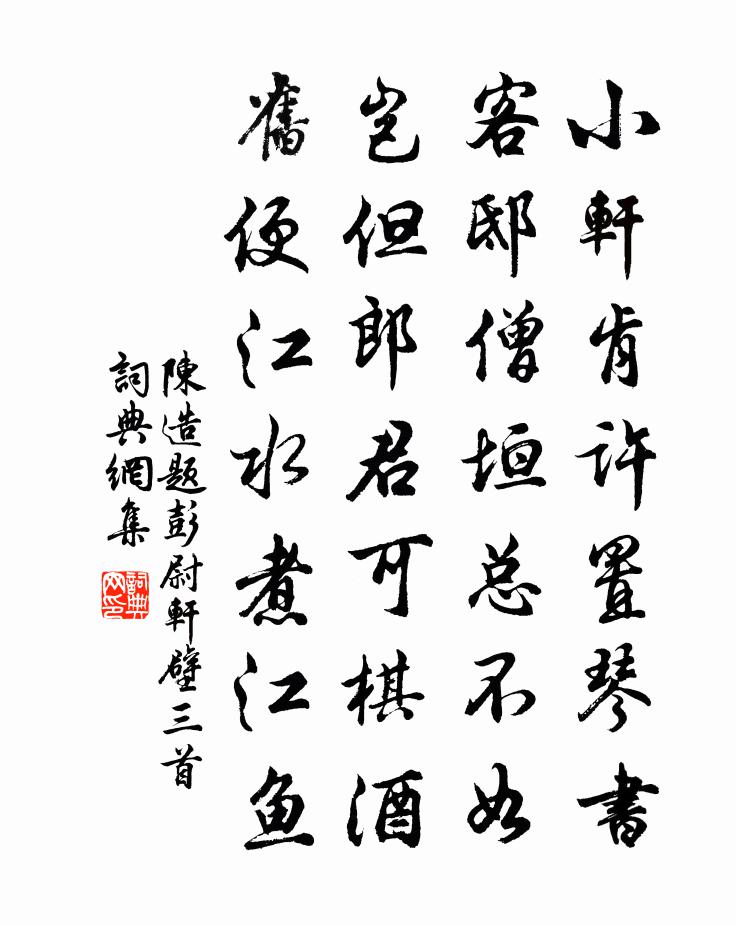 小軒肯許置琴書
客邸僧垣总不如
岂但郎君可棋酒
舊便江水煮江鱼
陳造題彭尉軒壁三首
詞典網集
詞典网印